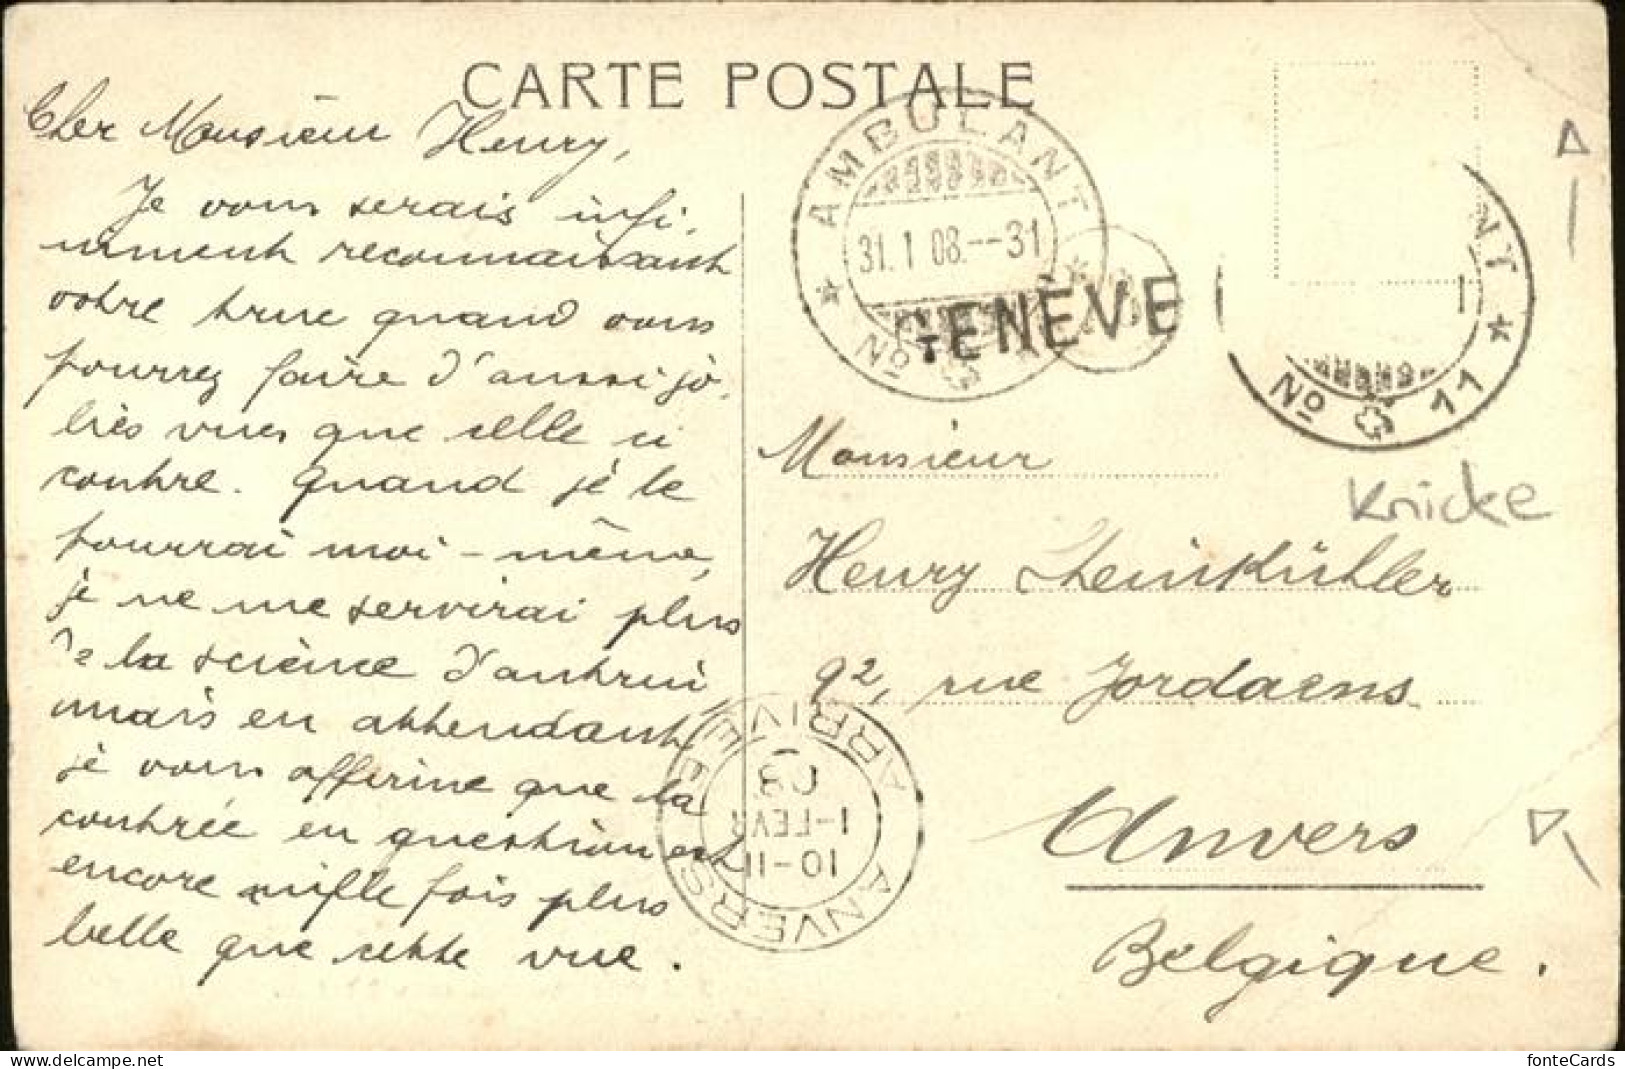 CARTE POSTALE
Cher Monsieur Henry,
Je vous serais infi-
niment reconnaissant
votre truc quand vous
pourrez faire d'aussi jo-
lies vues que celle ci
contre. Quand je le
pourrai moi-même,
je ne me servirai plus
de la science d'autrui,
mais en attendant,
je vous affirme que la
contrée en question est
encore mille fois plus
belle que cette vue.
AMBULANT
31.1 08.--31
No
GENÈVE
NT
No 11
Knicke
Monsieur
Henry Steinkühler
92, rue Jordaens
Anvers
Belgique.
ANVERS
10-11
1-FEVR
08
ARRIVÉE
fonteCards
https://www.delcampe.net